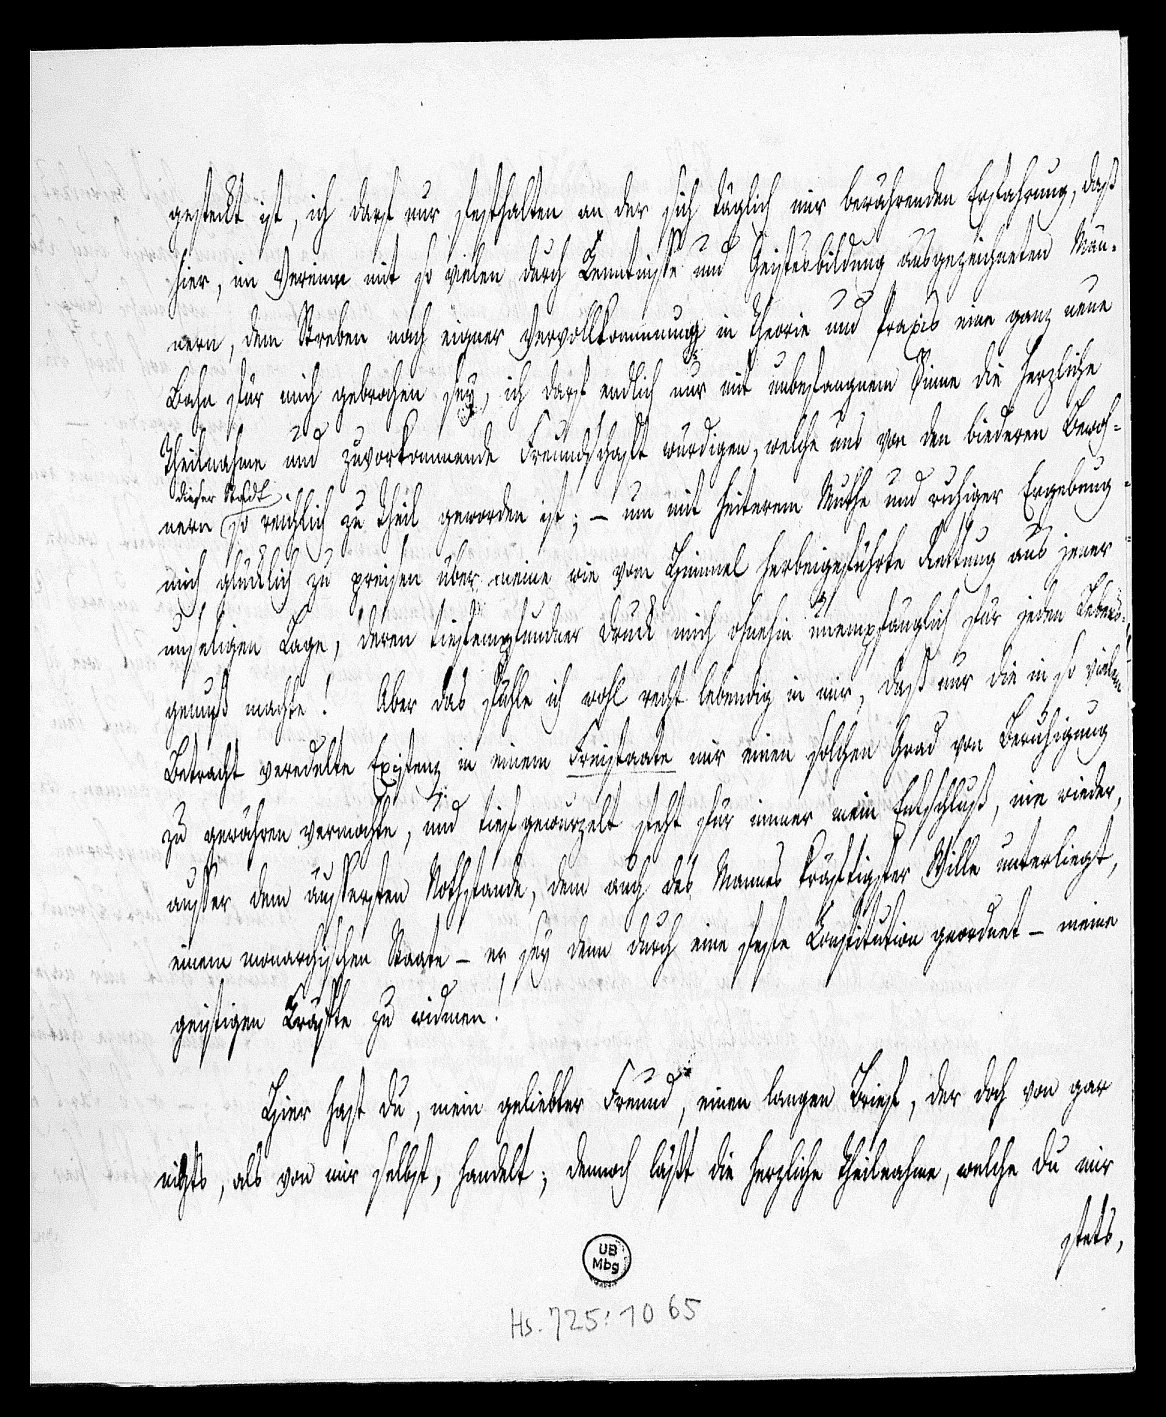 gesteckt ist, ich darf nur festhalten an der sich täglich mir bewährenden Erfahrung, daß
hier, im Vereine mit so vielen durch Kenntnisse und Geistesbildung ausgezeichneten Män-
nern, dem Streben nach eigner Vervollkommnung in Theorie und Praxis eine ganz neue
Bahn für mich gebrochen sey, ich darf endlich nur mit unbefangnem Sinne die herzliche
Theilnahme und zuvorkommende Freundschaft würdigen, welche uns von den biederen Bewoh-
dieser Stadt
nern so reichlich zu Theil geworden ist; – um mit heiterem Muthe und ruhiger Ergebung
mich glücklich zu preisen über meine wie vom Himmel herbeigeführte Rettung aus jener
unseligen Lage, deren tiefempfundner Druck mich ohnehin unempfänglich für jeden Lebens-
genuß machte! Aber das fühle ich wohl recht lebendig in mir, daß nur die in so vielem
Betracht veredelte Existenz in einem Freistaate mir einen solchen Grad von Beruhigung
zu gewähren vermochte, und tiefgewurzelt steht für immer mein Entschluß, nie wieder,
ausser dem äussersten Nothstande, dem auch des Mannes kräftigster Wille unterliegt,
einem monarchischen Staate – er sey denn durch eine feste Constitution geordnet – meine
geistigen Kräfte zu widmen!
Hier hast du, mein geliebter Freund, einen langen Brief, der doch von gar
nichts, als von mir selbst, handelt; dennoch läßt die herzliche Theilnahme, welche du mir
stets,
UB
Mbg
Hs. 725:1065